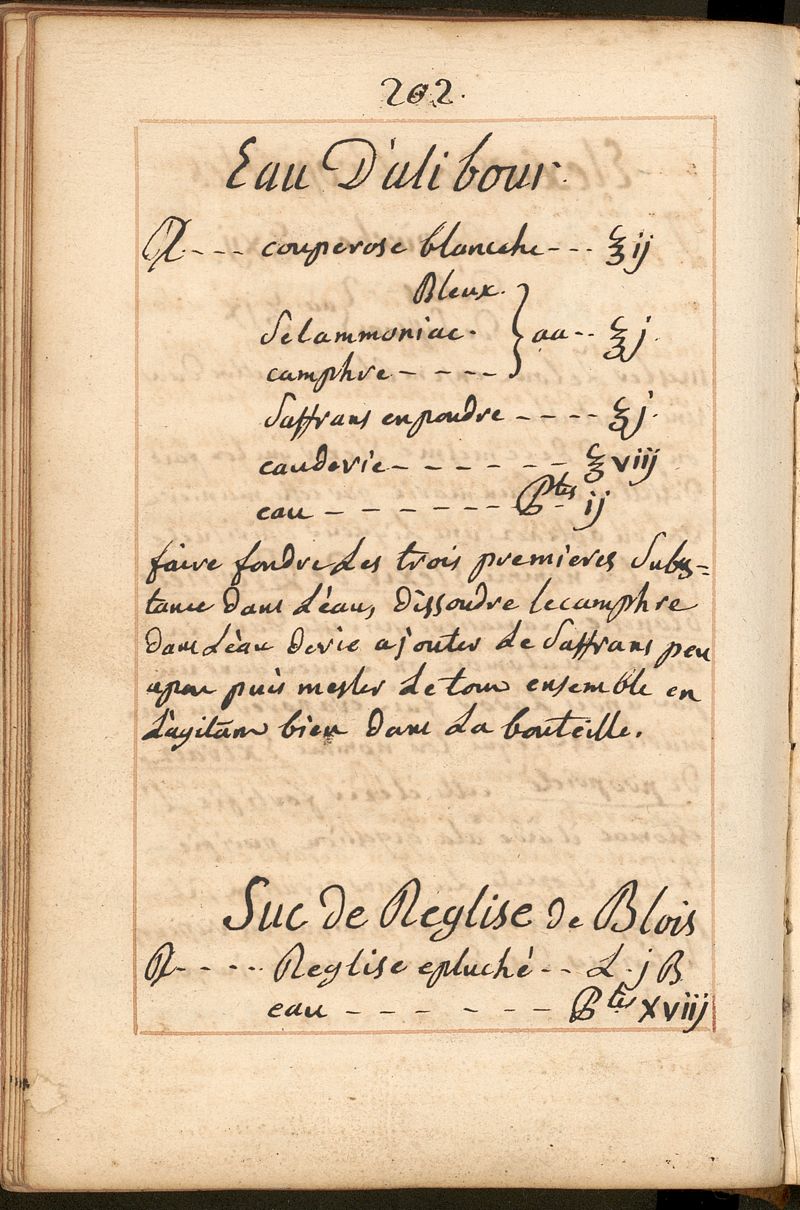 202.
Eau D'alibour.
℞ - - - couperose blanche - - - ℥ ij
Bleux.
Selammoniac. } aa - - ℥ j.
camphre - - - -
Saffrans enpoudre - - - - ℥ j.
eaudevie - - - - - - ℥ viij
eau - - - - - - - Ptes ij
faire fondre Les trois premieres Subs=
tance dans L'eau, Dissoudre lecamphre
dans L'eau devie ajouter Le Saffrans peu
apeu puis mesler Letout ensemble en
L'agitant bien dans La bouteille.
Suc de Reglise de Blois
℞ - - - - Reglise epluché - - L. j ß
eau - - - - - - Ptes xviij